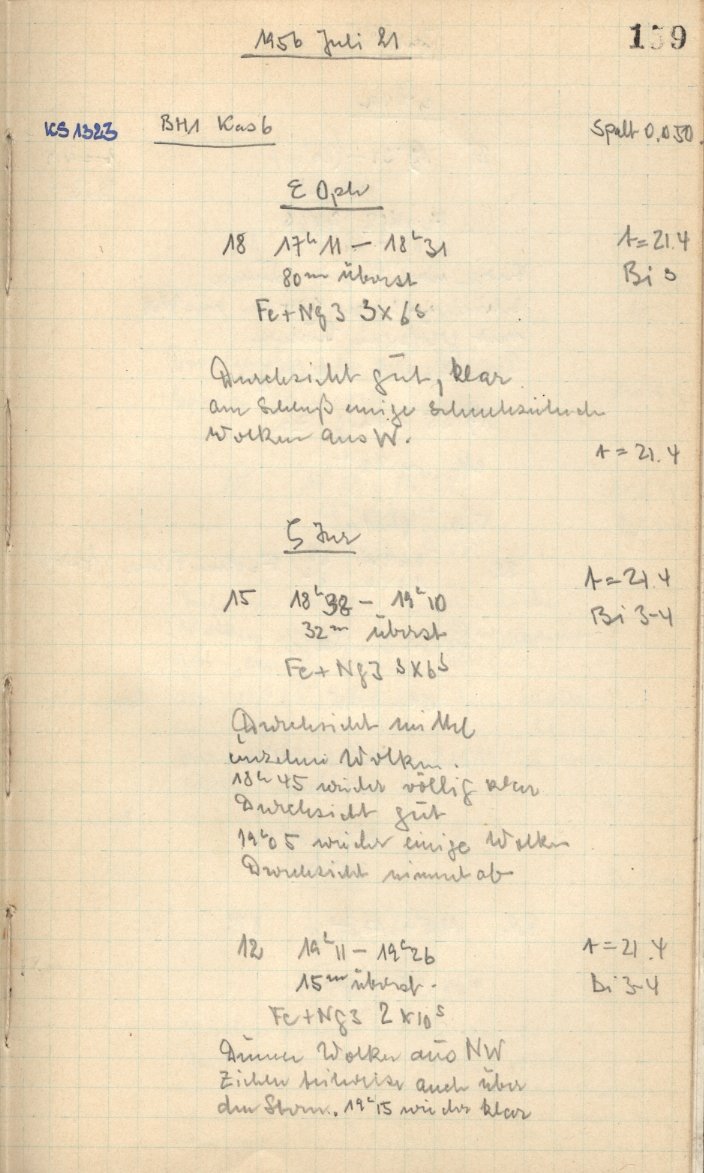 1956 Juli 21
159
KS 1323 BH1 Kas 6 Spalt 0.050
ε Oph
18 17ʰ11 – 18ʰ31 t=21.4
80ᵐ überst Bi 3
Fe+Ng3 3x6ˢ
Durchsicht gut, klar
am Schluß einige
Wolken aus W.
t=21.4
ζ
15 18ʰ38 – 19ʰ10 t=21.4
32ᵐ überst Bi 3-4
Fe+Ng3 3x6ˢ
Durchsicht mittel
einzelne Wolken.
18ʰ45 wieder völlig klar
Durchsicht gut
19ʰ05 wieder einige Wolken
Durchsicht nimmt ab
12 19ʰ11 – 19ʰ26 t=21.4
15ᵐ überst. Bi 3-4
Fe+Ng3 2x10ˢ
Dünne Wolken aus NW
ziehen teilweise auch über
den Stern. 19ʰ15 wieder klar